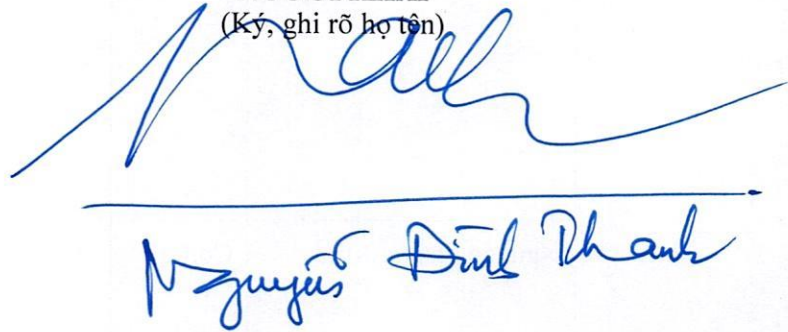 (Ký, ghi rõ họ tên)
Nguyễn Đình Thanh